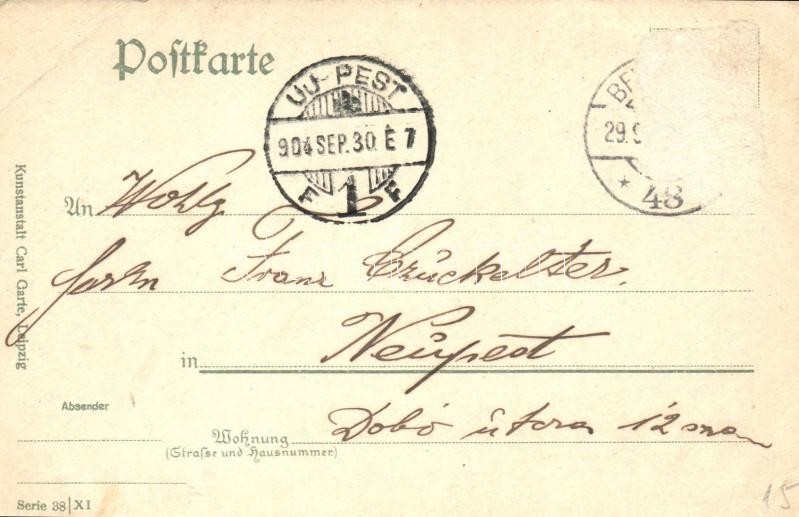 Postkarte
UJ-PEST
904 SEP. 30. E 7
F 1 F
BE
29.9
* 48
An Wohlg
Herrn Franz Brückelster.
in Neupest
Wohnung Dobó útcza 12 szam
(Strasse und Hausnummer)
Absender
Kunstanstalt Carl Garte, Leipzig
Serie 38 | XI
15